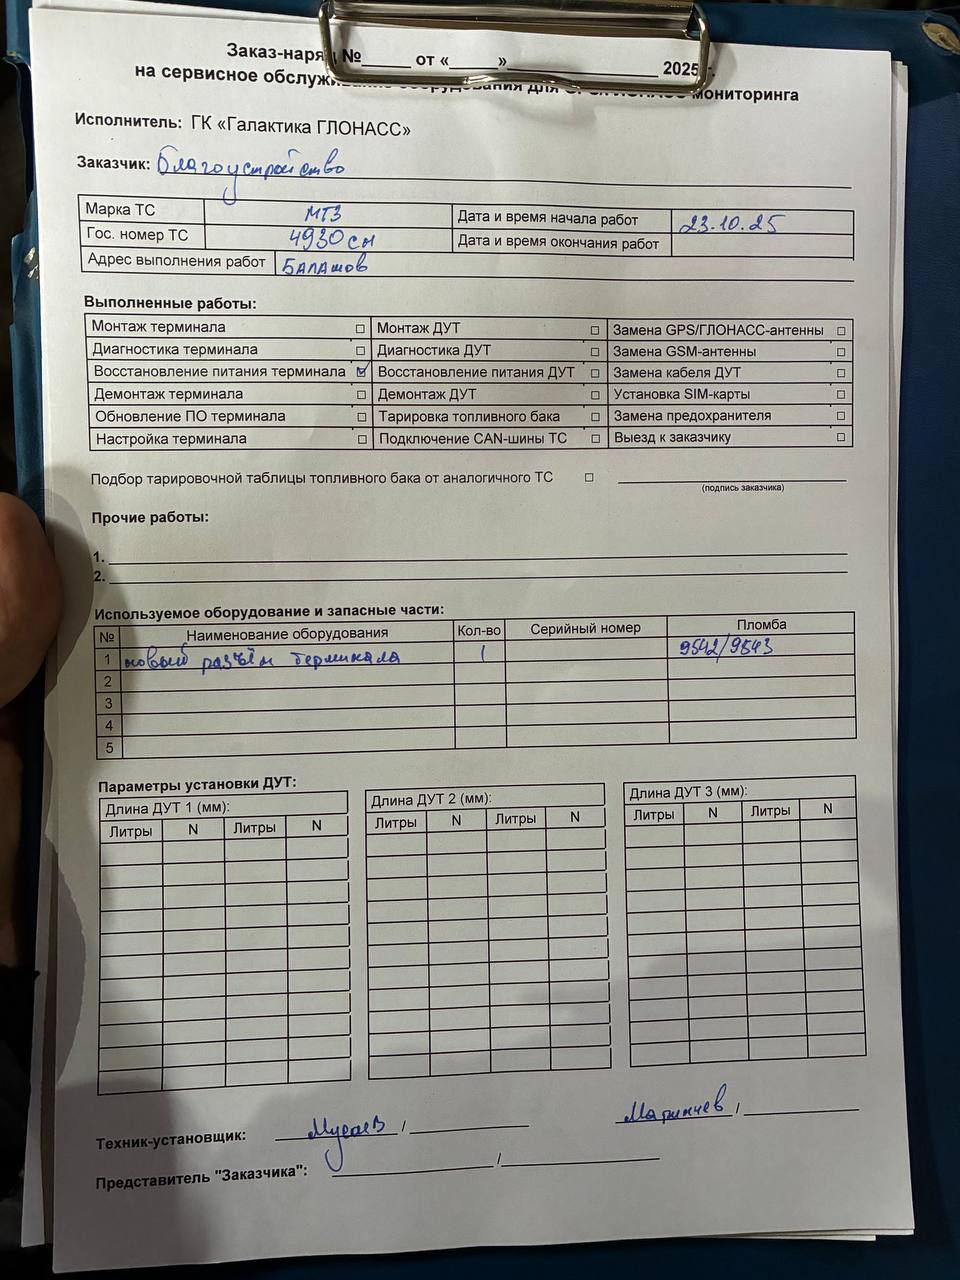 Заказ-наряд №_____ от «_____»_______________ 2025 г.
на сервисное обслуживание оборудования для GPS/ГЛОНАСС мониторинга
Исполнитель: ГК «Галактика ГЛОНАСС»
Заказчик: Благоустройство
Марка ТС МТЗ Дата и время начала работ 23.10.25
Гос. номер ТС 4930 СН Дата и время окончания работ
Адрес выполнения работ БАЛАШОВ
Выполненные работы:
Монтаж терминала ☐ Монтаж ДУТ ☐ Замена GPS/ГЛОНАСС-антенны ☐
Диагностика терминала ☐ Диагностика ДУТ ☐ Замена GSM-антенны ☐
Восстановление питания терминала ☑ Восстановление питания ДУТ ☐ Замена кабеля ДУТ ☐
Демонтаж терминала ☐ Демонтаж ДУТ ☐ Установка SIM-карты ☐
Обновление ПО терминала ☐ Тарировка топливного бака ☐ Замена предохранителя ☐
Настройка терминала ☐ Подключение CAN-шины ТС ☐ Выезд к заказчику ☐
Подбор тарировочной таблицы топливного бака от аналогичного ТС ☐
(подпись заказчика)
Прочие работы:
1.
2.
Используемое оборудование и запасные части:
№ Наименование оборудования Кол-во Серийный номер Пломба
1 новый разъём терминала 1 9542/9543
2
3
4
5
Параметры установки ДУТ:
Длина ДУТ 1 (мм): Длина ДУТ 2 (мм): Длина ДУТ 3 (мм):
Литры N Литры N Литры N Литры N Литры N Литры N
Техник-установщик: Мусаев / /
Представитель "Заказчика": /